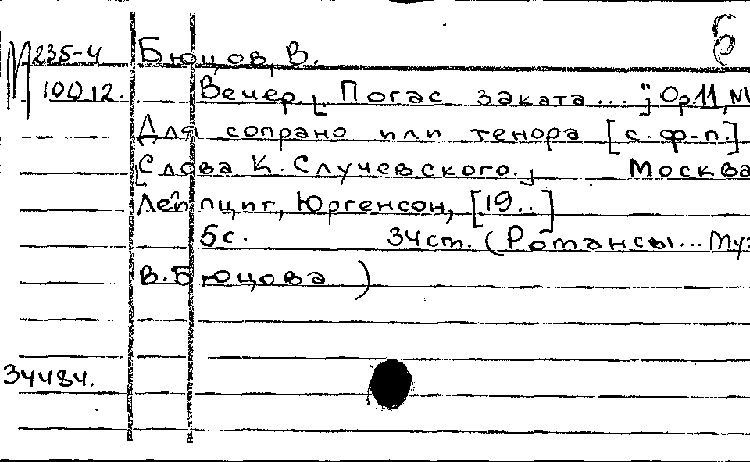 Б
М 235-4 Бюцов, В.
100 12. Вечер. [Погас заката..."] Op.11, №
Для сопрано или тенора [с. ф-п.]
[Слова К. Случевского.] Москва
Лейпциг, Юргенсон, [19..]
5с. 34см. (Романсы... Муз
В. Бюцова)
34484.